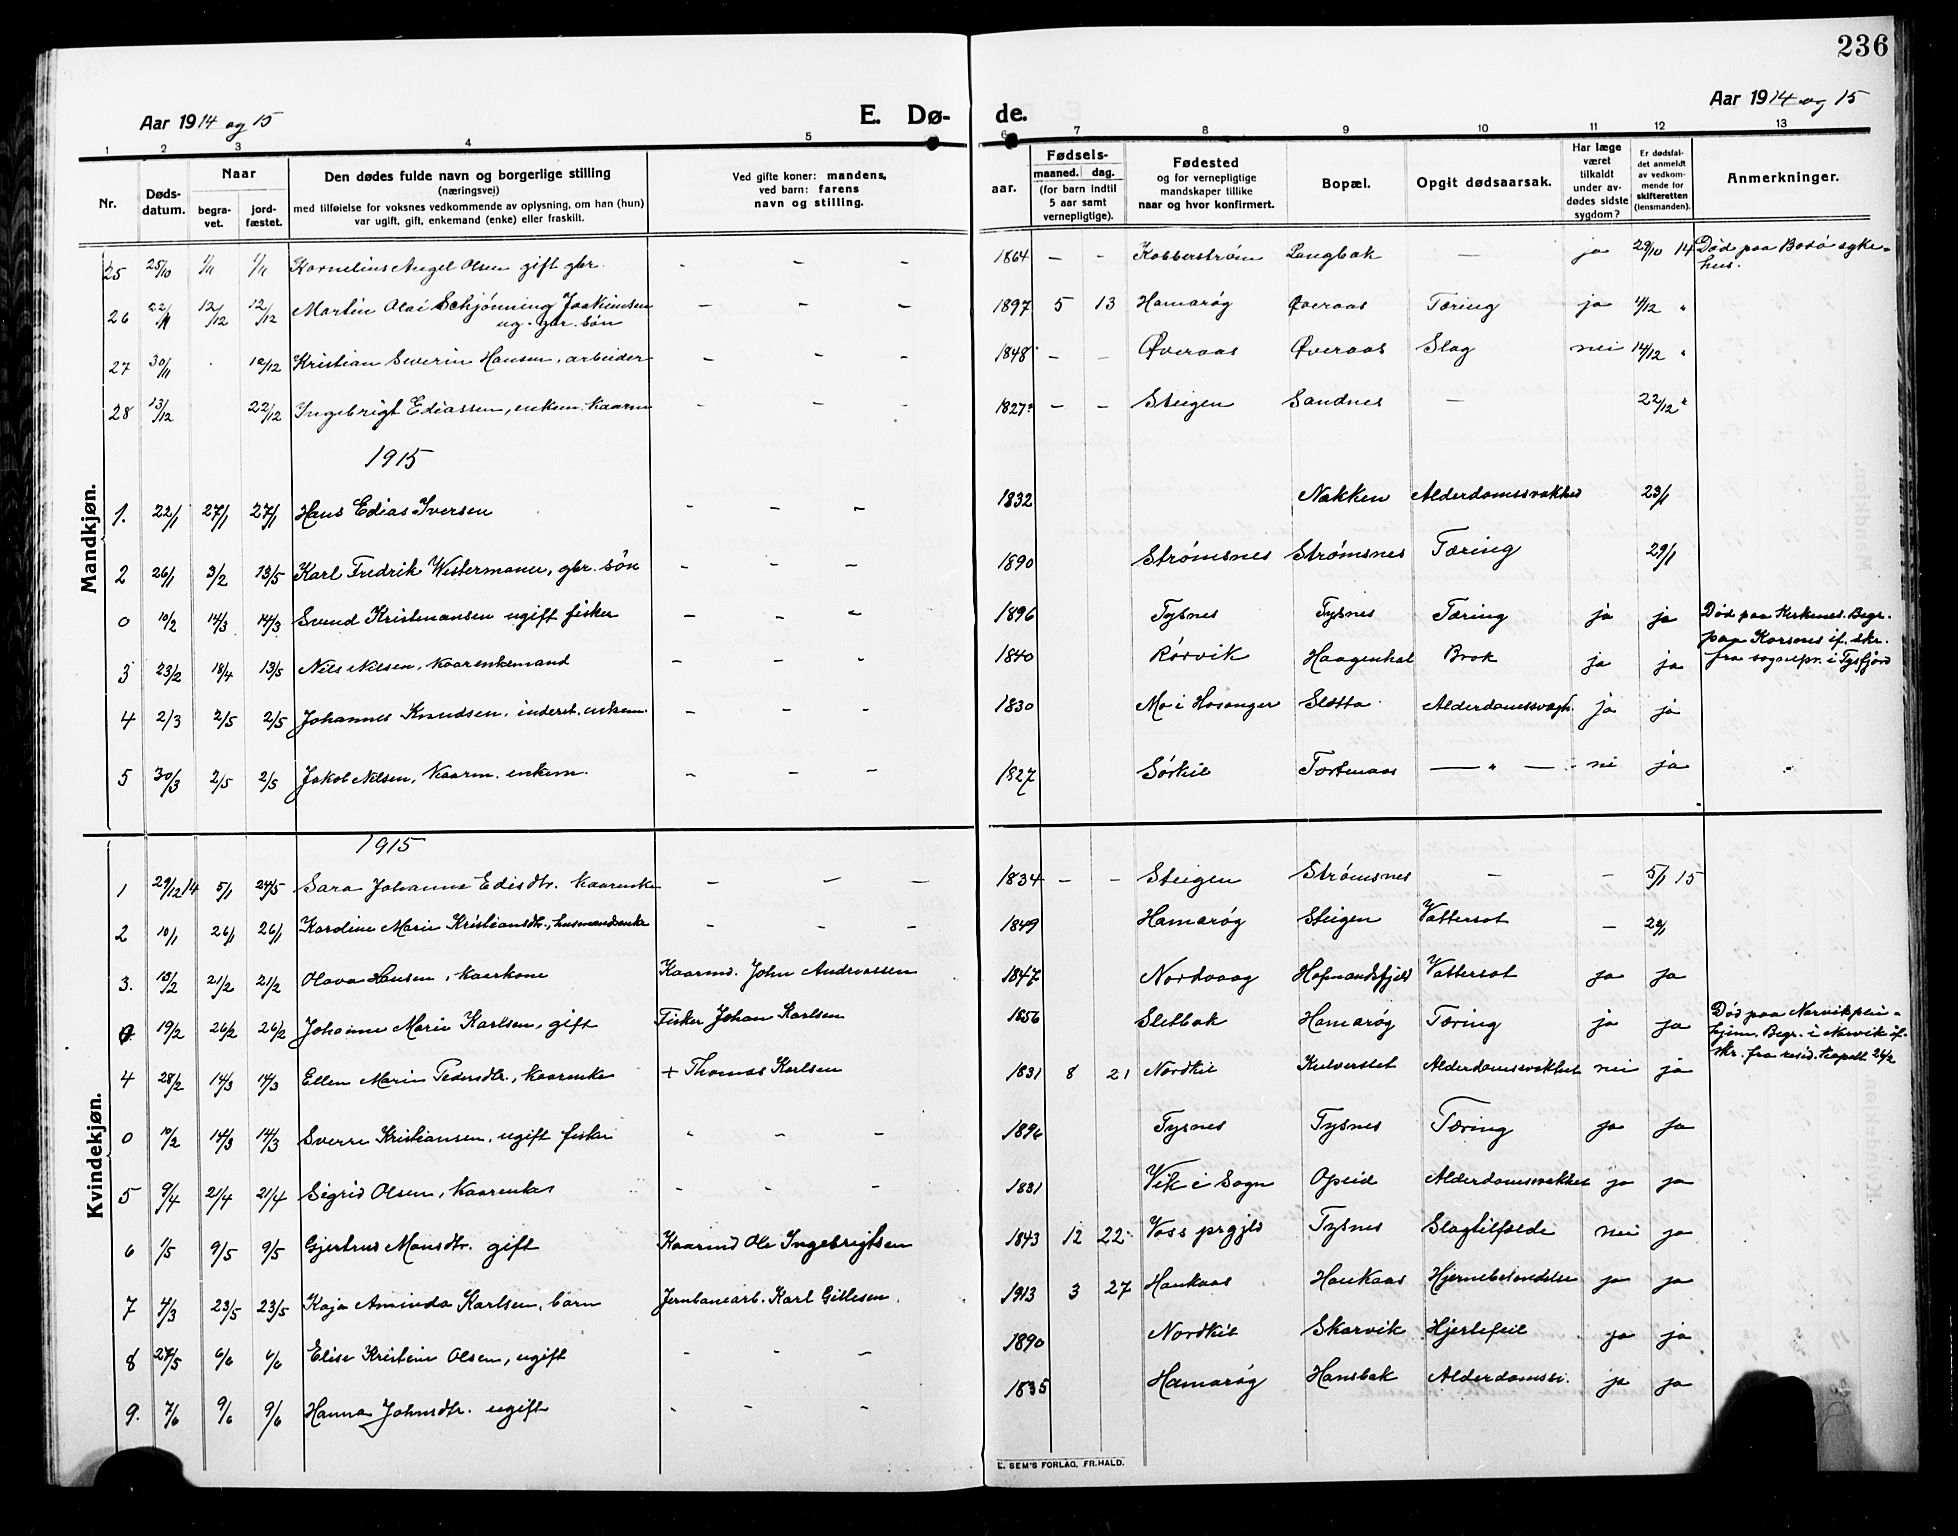 236
Aar 1914 og 15
E. Dø-
de.
Aar 1914 og 15
1 2 3 4 5 6 7 8 9 10 11 12 13
Nr.
Døds-
datum.
Naar
begra-
vet.
jord-
fæstet.
Den dødes fulde navn og borgerlige stilling
(næringsvei)
med tilføielse for voksnes vedkommende av oplysning, om han (hun)
var ugift, gift, enkemand (enke) eller fraskilt.
Ved gifte koner: mandens,
ved barn: farens
navn og stilling.
Fødsels-
aar.
maaned. dag.
(for barn indtil
5 aar samt
vernepligtige).
Fødested
og for vernepligtige
mandskaper tillike
naar og hvor konfirmert.
Bopæl.
Opgit dødsaarsak.
Har læge
været
tilkaldt
under av-
dødes sidste
sygdom?
Er dødsfal-
det anmeldt
av vedkom-
mende for
skifteretten
(lensmanden).
Anmerkninger.
Mandkjøn.
25 25/10 1/11 1/11 Kornelius Angel Olsen gift gbr. - - - 1864 - - Kobberstrøm Langbak - ja 29/10 14 Død paa Bodø syke-
hus.
26 22/11 12/12 12/12 Martin Olai Schjønning Joakimsen - - - 1897 5 13 Hamarøg Øveraas Tæring ja 4/12 "
ug. gbr. søn
27 30/11 12/12 Kristian Severin Hansen, arbeider - - - 1848 - - Øveraas Øveraas Slag nei 14/12 "
28 13/12 22/12 Ingebrigt Ediassen, enkem. Kaarm - - - 1827 - - Steigen Sandnes - 22/12 "
1915
1. 22/1 27/1 27/1 Hans Edias Iversen - - - 1832 Nakken Alderdomssvakhed 23/1
2 26/1 3/2 13/5 Karl Fredrik Westermann, gbr. søn - - - 1890 Strømsnes Strømsnes Tæring 29/1
0 10/2 14/3 14/3 Svend Kristiansen ugift fisker - - - 1896 Tysnes Tysnes Tæring ja ja Død paa Kirkenes. Begr.
paa Korsnes if. skr.
fra sognepr. i Tysfjord
3 23/2 18/4 13/5 Nils Nilsen, Kaarenkemand - - - 1840 Rørvik Haagenhal Brok ja ja
4 2/3 2/5 2/5 Johannes Knudsen, inderst, enkem. - - - 1830 Mo i Hosanger Sletta Alderdomssvagh. ja ja
5 30/3 2/5 2/5 Jakob Nilsen, Kaarm. enkem. - - - 1827 Sørkil Tortenaas - " - nei ja
Kvindekjøn.
1915
1 29/12 14 5/1 24/5 Sara Johanna Edisdtr. Kaarenke - - - 1834 - - Steigen Strømsnes - - 5/1 15
2 10/1 26/1 26/1 Karoline Marie Kristiansdtr., husmandsenke - - - 1849 Hamarøg Steigen Vattersot - 22/1
3. 13/2 21/2 21/2 Olava Hansen, Kaarkone Kaarmd. John Andreassen 1847 Nordvaag Hofmandsfjeld Vattersot ja ja
0 19/2 26/2 26/2 Johanne Marie Karlsen, gift Fisker Johan Karlsen 1856 Sletbak Hamarøg Tæring ja ja Død paa Narvik pleie-
hjem. Begr. i Narvik if.
skr. fra resid. kapell. 26/2
4 28/2 14/3 14/3 Ellen Marie Pedersdtr., Kaarenke + Thomas Karlsen 1831 8 21 Nordkil Kulverslet Alderdomssvakhet nei ja
0 10/2 14/3 14/3 Sverre Kristiansen, ugift fisker - - - 1896 Tysnes Tysnes Tæring ja ja
5 9/4 21/4 21/4 Sigrid Olsen, Kaarenke - - - 1831 Vik i Sogn Opeid Alderdomssvakhet ja ja
6 1/5 9/5 9/5 Gjertrud Monsdtr. gift Kaarmd Ole Ingebrigtsen 1843 12 22 Voss prgjld Tysnes Slagtilfælde nei ja
7 4/3 23/5 23/5 Kaja Aminda Karlsen, barn Jernbanearb. Karl Gillesen 1913 3 27 Haukaas Haukaas Hjernebetændelse ja ja
8 27/5 6/6 6/6 Elise Kristine Olsen, ugift - - - 1890 Nordkil Skarvik Hjertefeil ja ja
9. 7/6 9/6 9/6 Hanna Johnsdtr. ugift - - - 1835 Hamarøg Hansbak Alderdomssv. ja ja
E. SEM'S FORLAG, FR.HALD.